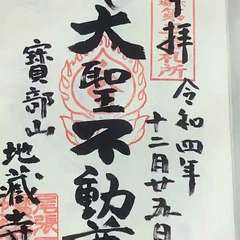 奉拝
令和四年
十二月廿五日
大聖不動尊
寳部山
地蔵寺